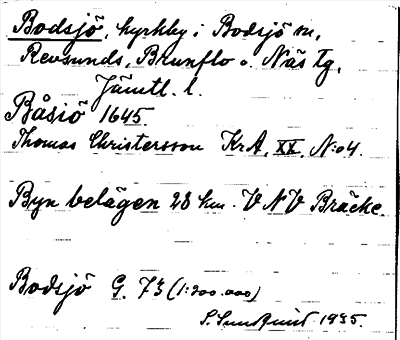 Bodsjö, kyrkby i Bodsjö sn,
Revsunds, Brunflo o. Näs tg,
Jämtl. l.
Båsiö 1645.
Thomas Christersson KrA, XX, No 4.
Byn belägen 28 km. VNV Bräcke.
Bodsjö G. 73 (1:200.000)
S. Sundquist 1935.